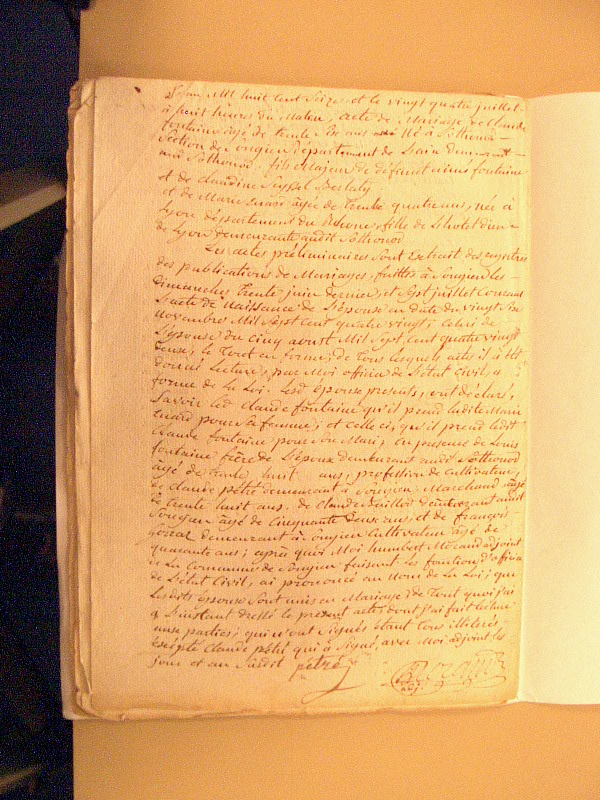 L'an Mil huit Cent Seize et le vingt quatre juillet
à huit heures du Matin, acte de Mariage de Claude
fontaine agé de trente six ans né à Sothonod
Section de Songieu département de Lain demeurant
audit Sothonod. fils Majeur de défunt aimé fontaine
et de Claudine Seyssel
et de Marie agée de trente quatre ans, née à
Lyon département du Rhone, fille de L'hotel dieu
de Lyon demeurante audit Sothonod
Les actes préliminaires Sont Extrait des registres
des publications de Mariages, faittes à Songieu les
dimanches trente juin dernier, et Sept juillet Courant
L'acte de Naissance de L'époux en date du vingt
Novembre Mil Sept Cent quatre vingt; Celui de
L'épouse du Cinq aoust Mil Sept Cent quatre vingt
deux; le Tout en forme; de Tous lesquels actes il à été
donné Lecture, par Moi officier de L'état Civil, a
forme de La Loi. Lesd. épouse presents, ont déclaré,
Savoir led. Claude fontaine qu'il prend ladite Marie
pour Sa femme; et Celle ci, qu'il prend ledit
Claude fontaine pour Son Mari; En presence de Louis
fontaine frère de L'époux demeurant audit Sothonod
agé de trente huit ans, profession de Cultivateur,
de Claude pétré demeurant à Songieu Marchand agé
de trente huit ans. de Claude demeurant audit
Songieu agé de Cinquante deux ans, et de françois
demeurant à Songieu Cultivateur agé de
quarante ans; après quoi Moi humbert adjoint
de La Commune de Songieu faisant les fonctions d'officier
de L'état Civil, ai prononcé au Nom de La Loi; que
Lesdits épouse Sont unis en Mariage; de Tout quoi j'ai
à L'instant dressé le présent acte, dont j'ai fait lecture
aux parties; qui n'ont Signés étant tous illiterés,
excepté Claude pétré qui à Signé, avec Moi adjoint les
jour et an Susdit pétré
adj.